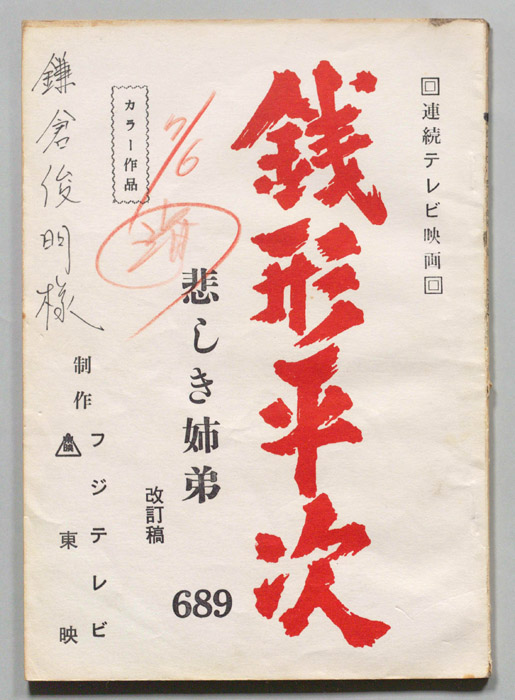 □連続テレビ映画□
銭形平次
悲しき姉弟
改訂稿
689
カラー作品
7/6
制作 フジテレビ
東映
鎌倉俊明様